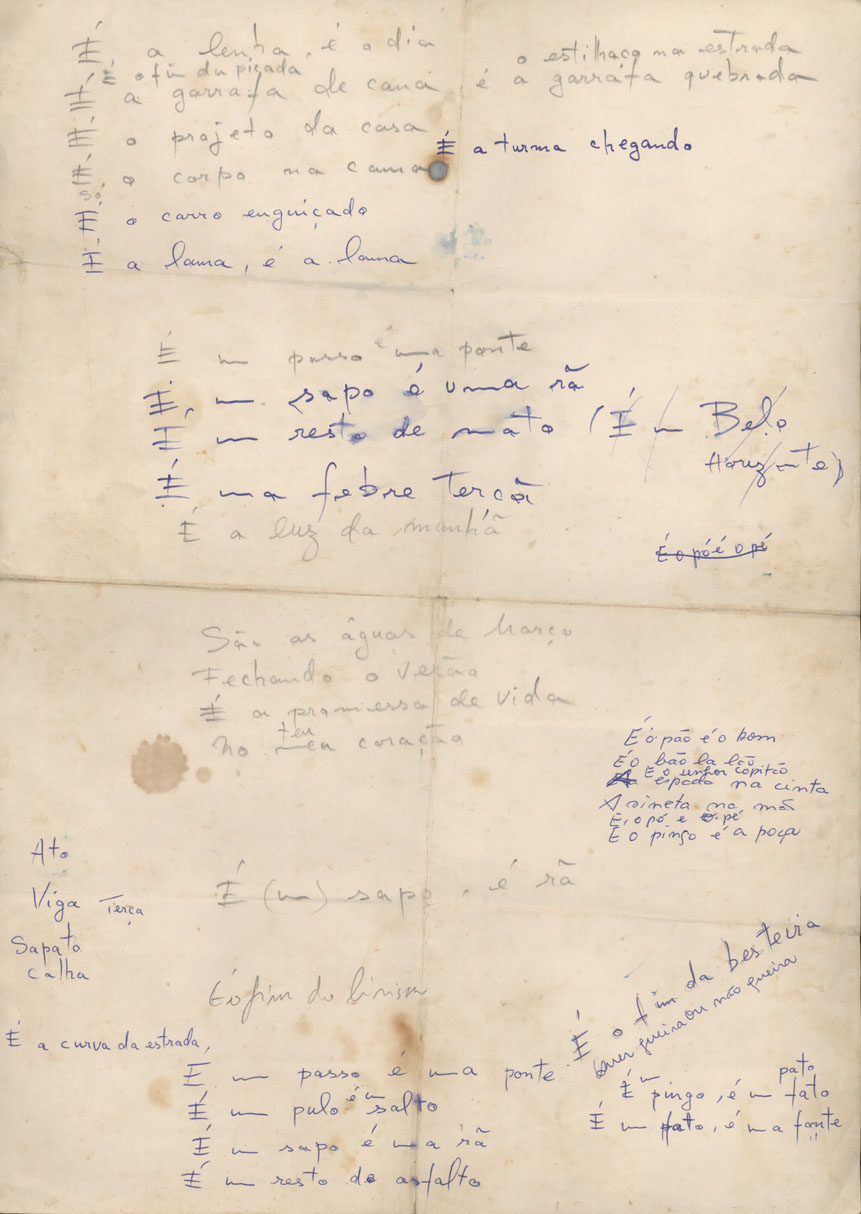 É a lenha, é o dia
o estilhaço na estrada
É o fim da picada
É a garrafa de cana, é a garrafa quebrada
É o projeto da casa
É a turma chegando
É o corpo na cama
Só
É o carro enguiçado
É a lama, é a lama
É um passo é uma ponte
É, um sapo é uma rã
É um resto de mato (É um Belo
Horizonte)
É uma febre terçã
É a luz da manhã
É o pó é o pé
São as águas de Março
Fechando o verão
É a promessa de vida
teu
No meu coração
É o pão é o bom
É o bão la lão
É o senhor capitão
espada na cinta
A sineta na mão
E, o pó e o pé
É o pingo é a poça
Ato
Viga Terça
Sapato
Calha
É (um) sapo, é rã
É o fim do
É o fim da besteira
Quer queira ou não queira
É a curva da estrada,
É um passo é uma ponte
É um pulo é um salto
É um sapo é uma rã
É um resto de asfalto
pato
É um pingo, é um fato
É um pato, é uma fonte